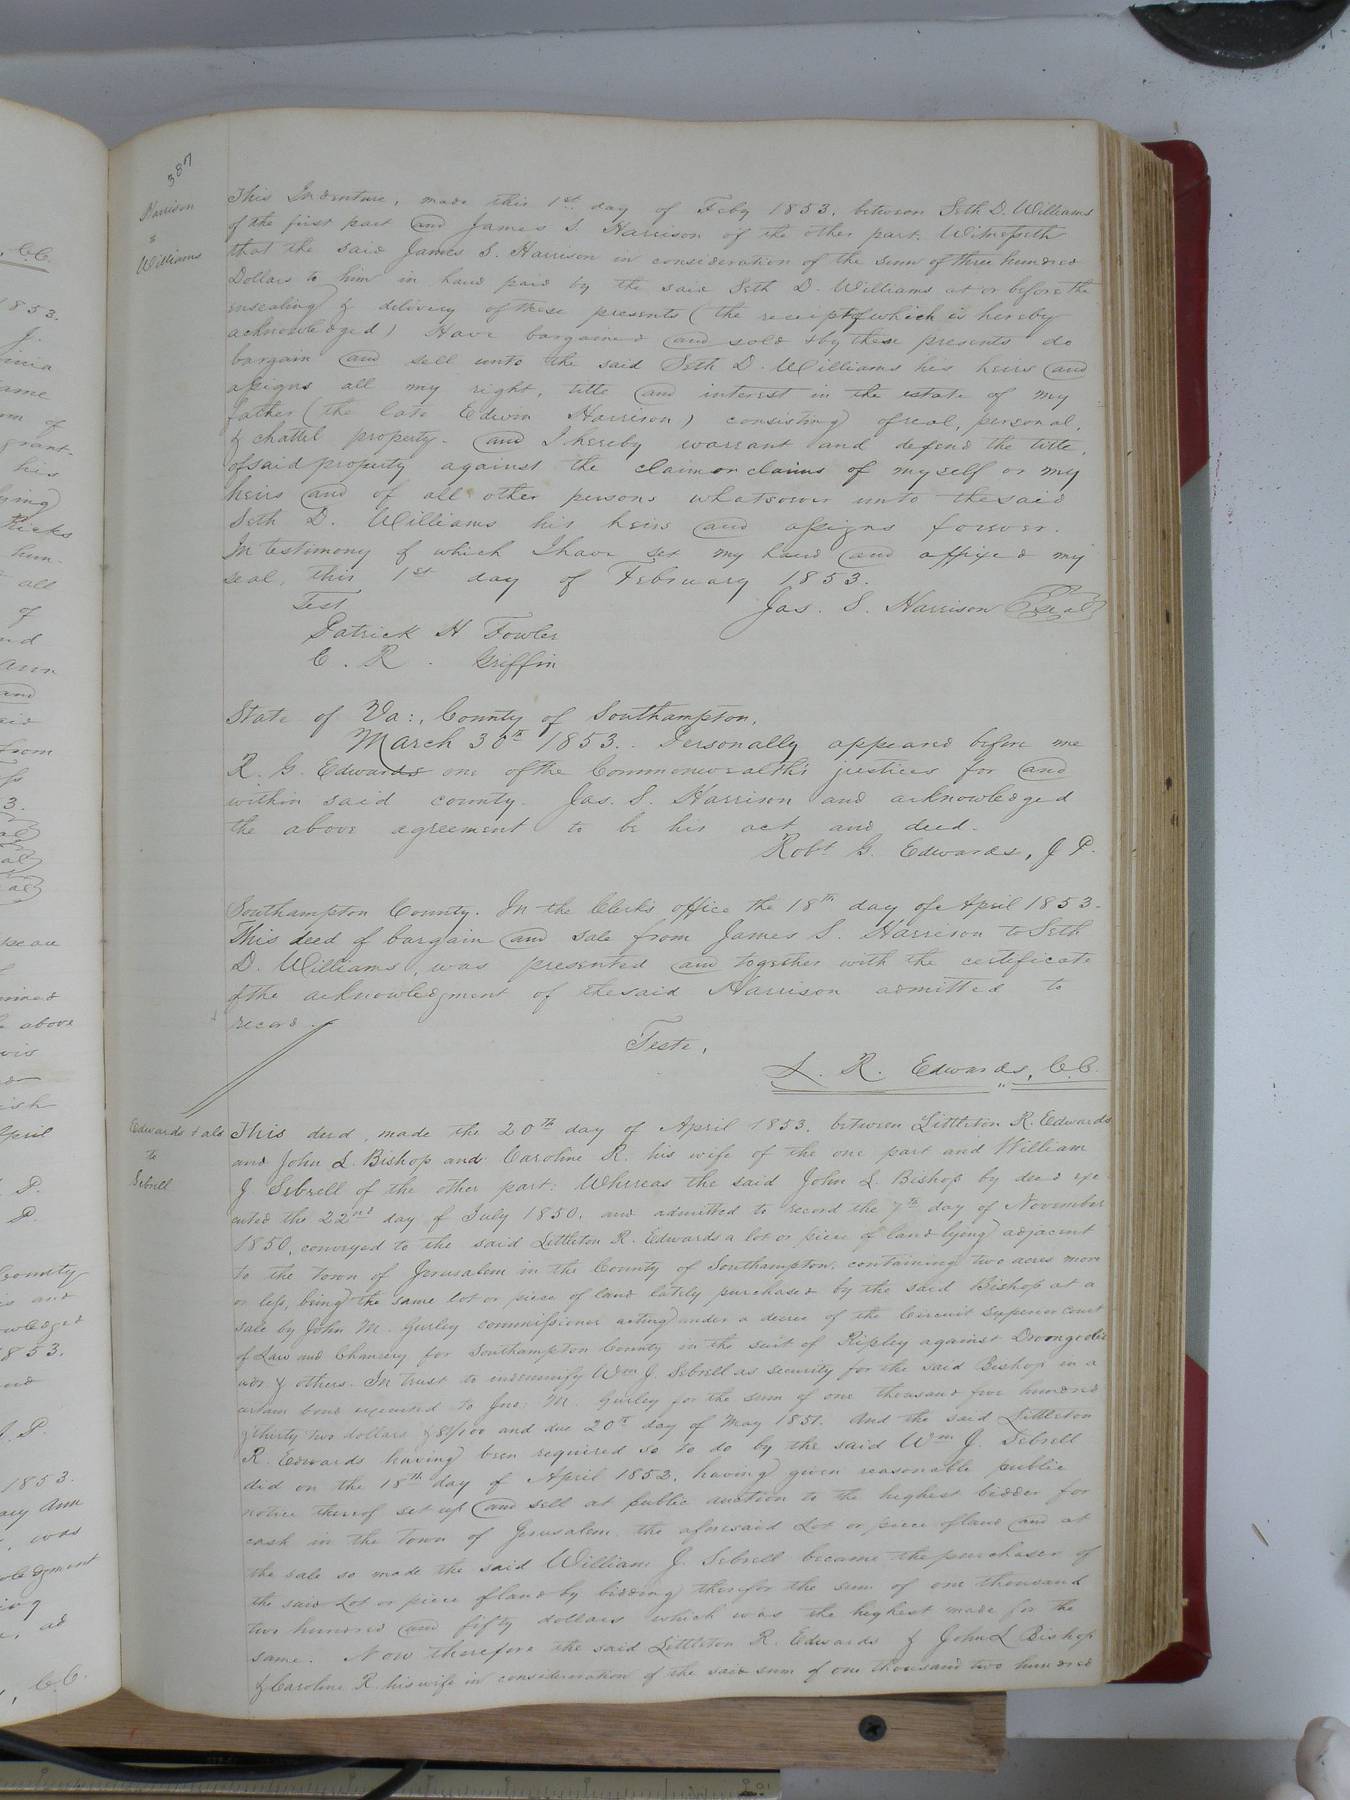 387
Harrison
to
Williams
This Indenture, made this 1st day of Feby 1853, between Seth D. Williams
of the first part and James S. Harrison of the other part. Witnesseth
that the said James S. Harrison in consideration of the sum of three hundred
Dollars to him in hand paid by the said Seth D. Williams at or before the
ensealing & delivery of these presents (the receipt of which is hereby
acknowledged) Have bargained and sold & by these presents do
bargain and sell unto the said Seth D. Williams his heirs and
assigns all my right, title and interest in the estate of my
father (the late Edwin Harrison) consisting of real, personal,
& chattel property. and I hereby warrant and defend the title,
of said property against the claim or claims of myself or my
heirs and of all other persons whatsoever unto the said
Seth D. Williams his heirs and assigns forever.
In testimony of which I have set my hand and affixed my
seal, this 1st day of February 1853.
Test
Jas. S. Harrison Seal
Patrick H Fowler
C. R. Griffin
State of Va:, County of Southampton,
March 30th 1853. Personally appeared before me
R. G. Edwards one of the Commonwealth's justices for and
within said county. Jas. S. Harrison and acknowledged
the above agreement to be his act and deed.
Robt G. Edwards, J P.
Southampton County. In the Clerk's office the 18th day of April 1853.
This deed of bargain and sale from James S. Harrison to Seth
D. Williams, was presented and together with the certificate
of the acknowledgment of the said Harrison admitted to
record.
Teste,
L. R. Edwards, C.C.
Edwards & als
to
Sebrell
This deed, made the 20th day of April 1853, between Littleton R. Edwards
and John L. Bishop and Caroline R. his wife of the one part and William
J. Sebrell of the other part: Whereas the said John L Bishop by deed exe
cuted the 22nd day of July 1850, and admitted to record the 7th day of November
1850, conveyed to the said Littleton R. Edwards a lot or piece of land lying adjacent
to the town of Jerusalem in the County of Southampton, containing two acres more
or less, being the same lot or piece of land lately purchased by the said Bishop at a
sale by John M. Gurley commissioner acting under a decree of the Circuit Superior Court
of Law and Chancery for Southampton County in the suit of Ripley against
adr & others. In trust to indemnify Wm J. Sebrell as security for the said Bishop in a
certain bond executed to Jno: M. Gurley for the sum of one thousand five hundred
& thirty two dollars & 81/100 and due 20th day of May 1851. And the said Littleton
R. Edwards having been required so to do by the said Wm J. Sebrell
did on the 18th day of April 1853, having given reasonable public
notice thereof set up and sell at public auction to the highest bidder for
cash in the town of Jerusalem the aforesaid Lot or piece of land and at
the sale so made the said William J. Sebrell became the purchaser of
the said Lot or piece of land by bidding therefor the sum of one thousand
two hundred and fifty dollars which was the highest made for the
same. Now therefore the said Littleton R. Edwards & John L Bishop
& Caroline R. his wife in consideration of the said sum of one thousand two hundred